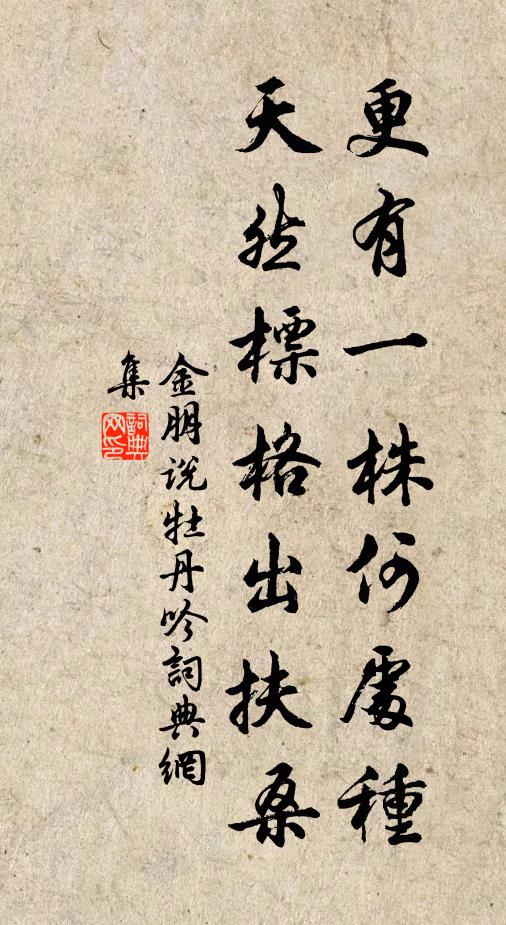 更有一株何處種
天然標格出扶桑
金朋說牡丹吟詞典網
集
詞典
网印